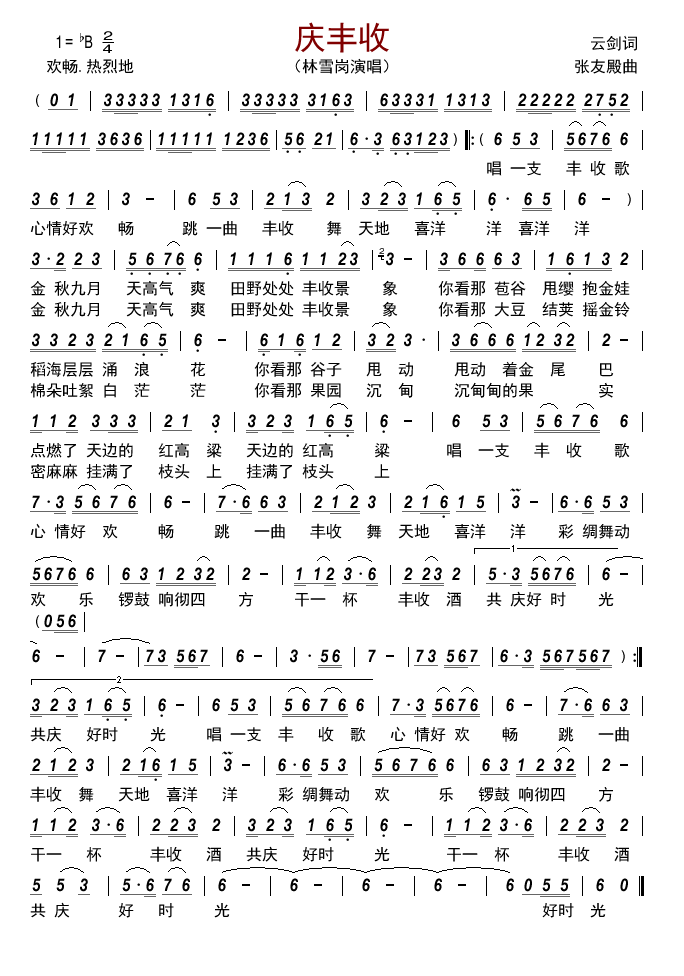 庆丰收
1= ♭B 2/4
云剑词
欢畅.热烈地
（林雪岗演唱）
张友殿曲
( 0 1 | 33333 1316 | 33333 3163 | 63331 1313 | 22222 2752 |
11111 3636 | 11111 1236 | 56 21 | 6·3 63123 ) ‖:( 6 53 | 5676 6 |
唱 一支 丰 收 歌
3 6 1 2 | 3 - | 6 53 | 213 2 | 323 165 | 6· 65 | 6 - ) |
心情好欢 畅 跳 一曲 丰收 舞 天地 喜洋 洋 喜洋 洋
3·2 23 | 5676 6 | 1116 1123 | 2 3 - | 3666 3 | 1613 2 |
金 秋九月 天高气 爽 田野处处 丰收景 象 你看那 苞谷 甩缨 抱金娃
金 秋九月 天高气 爽 田野处处 丰收景 象 你看那 大豆 结荚 摇金铃
3323 2165 | 6 - | 6161 12 | 323 3· | 3666 1232 | 2 - |
稻海层层 涌 浪 花 你看那 谷子 甩 动 甩动 着金 尾 巴
棉朵吐絮 白 茫 茫 你看那 果园 沉 甸 沉甸甸的果 实
112 333 | 21 3 | 323 165 | 6 - | 6 53 | 5676 6 |
点燃了 天边的 红高 粱 天边的 红高 粱 唱 一支 丰 收 歌
密麻麻 挂满了 枝头 上 挂满了 枝头 上
7·3 5676 | 6 - | 7·6 63 | 212 3 | 216 15 | 3 - | 6·6 53 |
心 情好 欢 畅 跳 一曲 丰收 舞 天地 喜洋 洋 彩 绸舞动
1
5676 6 | 63 1232 | 2 - | 112 3·6 | 223 2 | 5·3 5676 | 6 - |
欢 乐 锣鼓 响彻四 方 干一 杯 丰收 酒 共 庆好 时 光
( 056 |
6 - | 7 - | 73 567 | 6 - | 3· 56 | 7 - | 73 567 | 6·3 567567 ) :‖
2
323 165 | 6 - | 653 | 5676 6 | 7·3 5676 | 6 - | 7·6 63 |
共庆 好时 光 唱 一支 丰 收 歌 心 情好 欢 畅 跳 一曲
212 3 | 216 15 | 3 - | 6·653 | 5676 6 | 63 1232 | 2 - |
丰收 舞 天地 喜洋 洋 彩 绸舞动 欢 乐 锣鼓 响彻四 方
112 3·6 | 223 2 | 323 165 | 6 - | 112 3·6 | 223 2 |
干一 杯 丰收 酒 共庆 好时 光 干一 杯 丰收 酒
5 53 | 5·6 76 | 6 - | 6 - | 6 - | 6 - | 6055 | 6 0 ‖
共 庆 好 时 光 好时 光